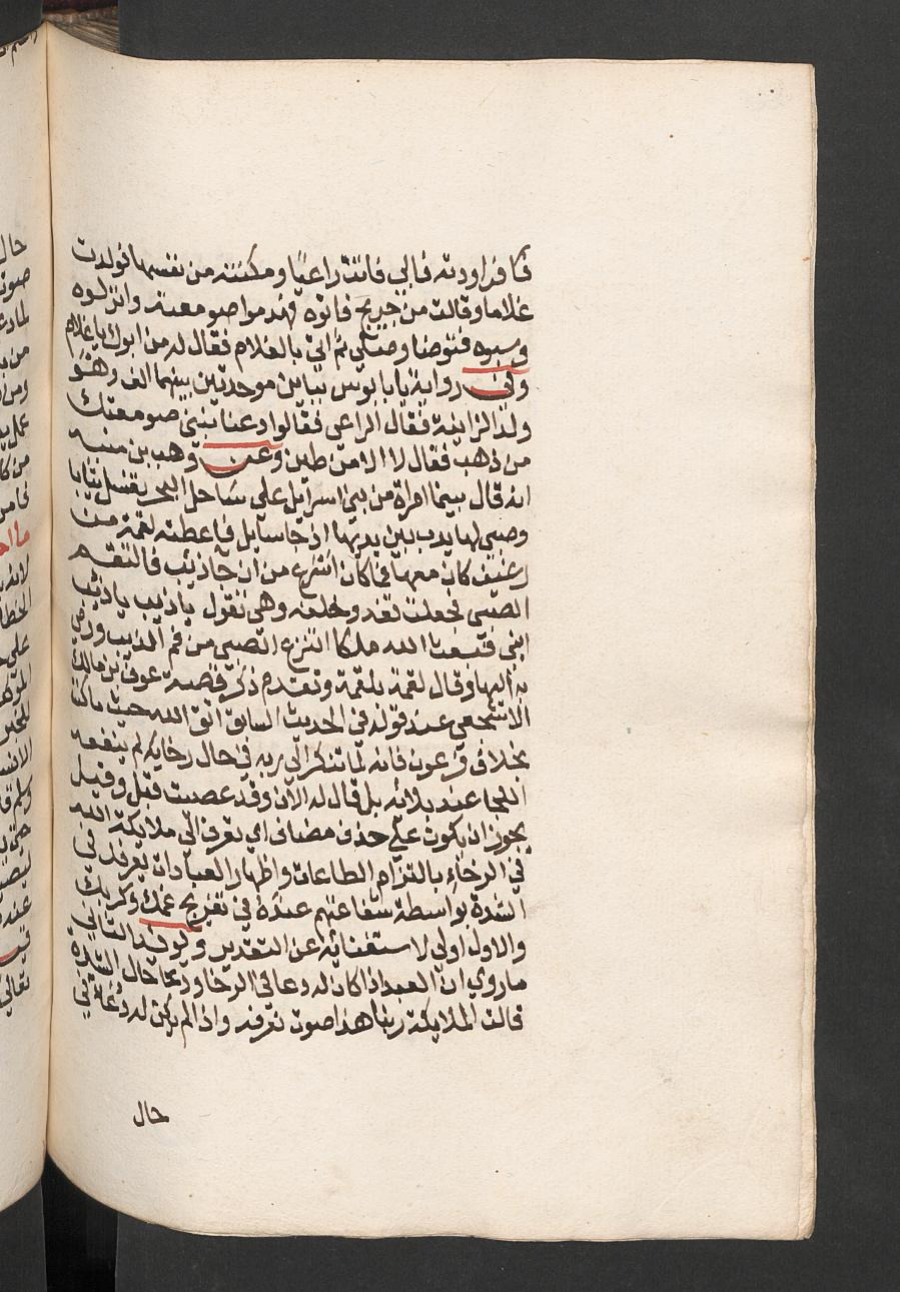 فراودته فابي فاتت راعيا ومكنته من نفسها فولدت
غلاما وقالت من جريج فاتوه فهدموا صومعته وانزلوه
وسبوه فتوضا وصلي ثم اتي بالغلام فقال له من ابوك يا غلام
وفي رواية يا بابوس ببائين موحدتين بينهما الف وهو
ولد الزانية فقال الراعي فقالوا دعنا نبني صومعتك
من ذهب فقال لا الا من طين وعن وهب بن منبه
انه قال بينما امراة من بني اسرايل علي ساحل البحر تغسل ثيابا
وصبي لها يدب بين يديها اذ جا سايل فاعطته لقمة من
رغيف كان معها فما كان اسرع من ان جا ذئب فالتقم
الصبي فجعلت تعدو خلفه وهي تقول يا ذيب يا ذيب
ابني فبعث الله ملكا انتزع الصبي من فم الذيب ورمي
به اليها وقال لقمة بلقمة وتقدم ذكر قصة عوف بن مالك
الاشجعي عند قوله في الحديث السابق اتق الله حيث ما كنت
بخلاف فرعون فانه لما تنكر الي ربه في حال رخايه لم ينفعه
اللجا عند بلائه بل قال له الآن وقد عصيت قبل وقيل
يجوز ان يكون علي حذف مضاف اي تعرف الي ملايكة الله
في الرخاء بالتزام الطاعات واظهار العبادات يعرفك في
الشدة بواسطة شفاعتهم عنده في تفريج غمك وكربك
والاول اولي لاستغنائه عن التقدير ويوكد الثاني
ما روي ان العبد اذا كان له دعا في الرخا ودعا حال الشدة
قالت الملايكة ربنا هذا صوت نعرفه واذا لم يكن له دعاء في
حال